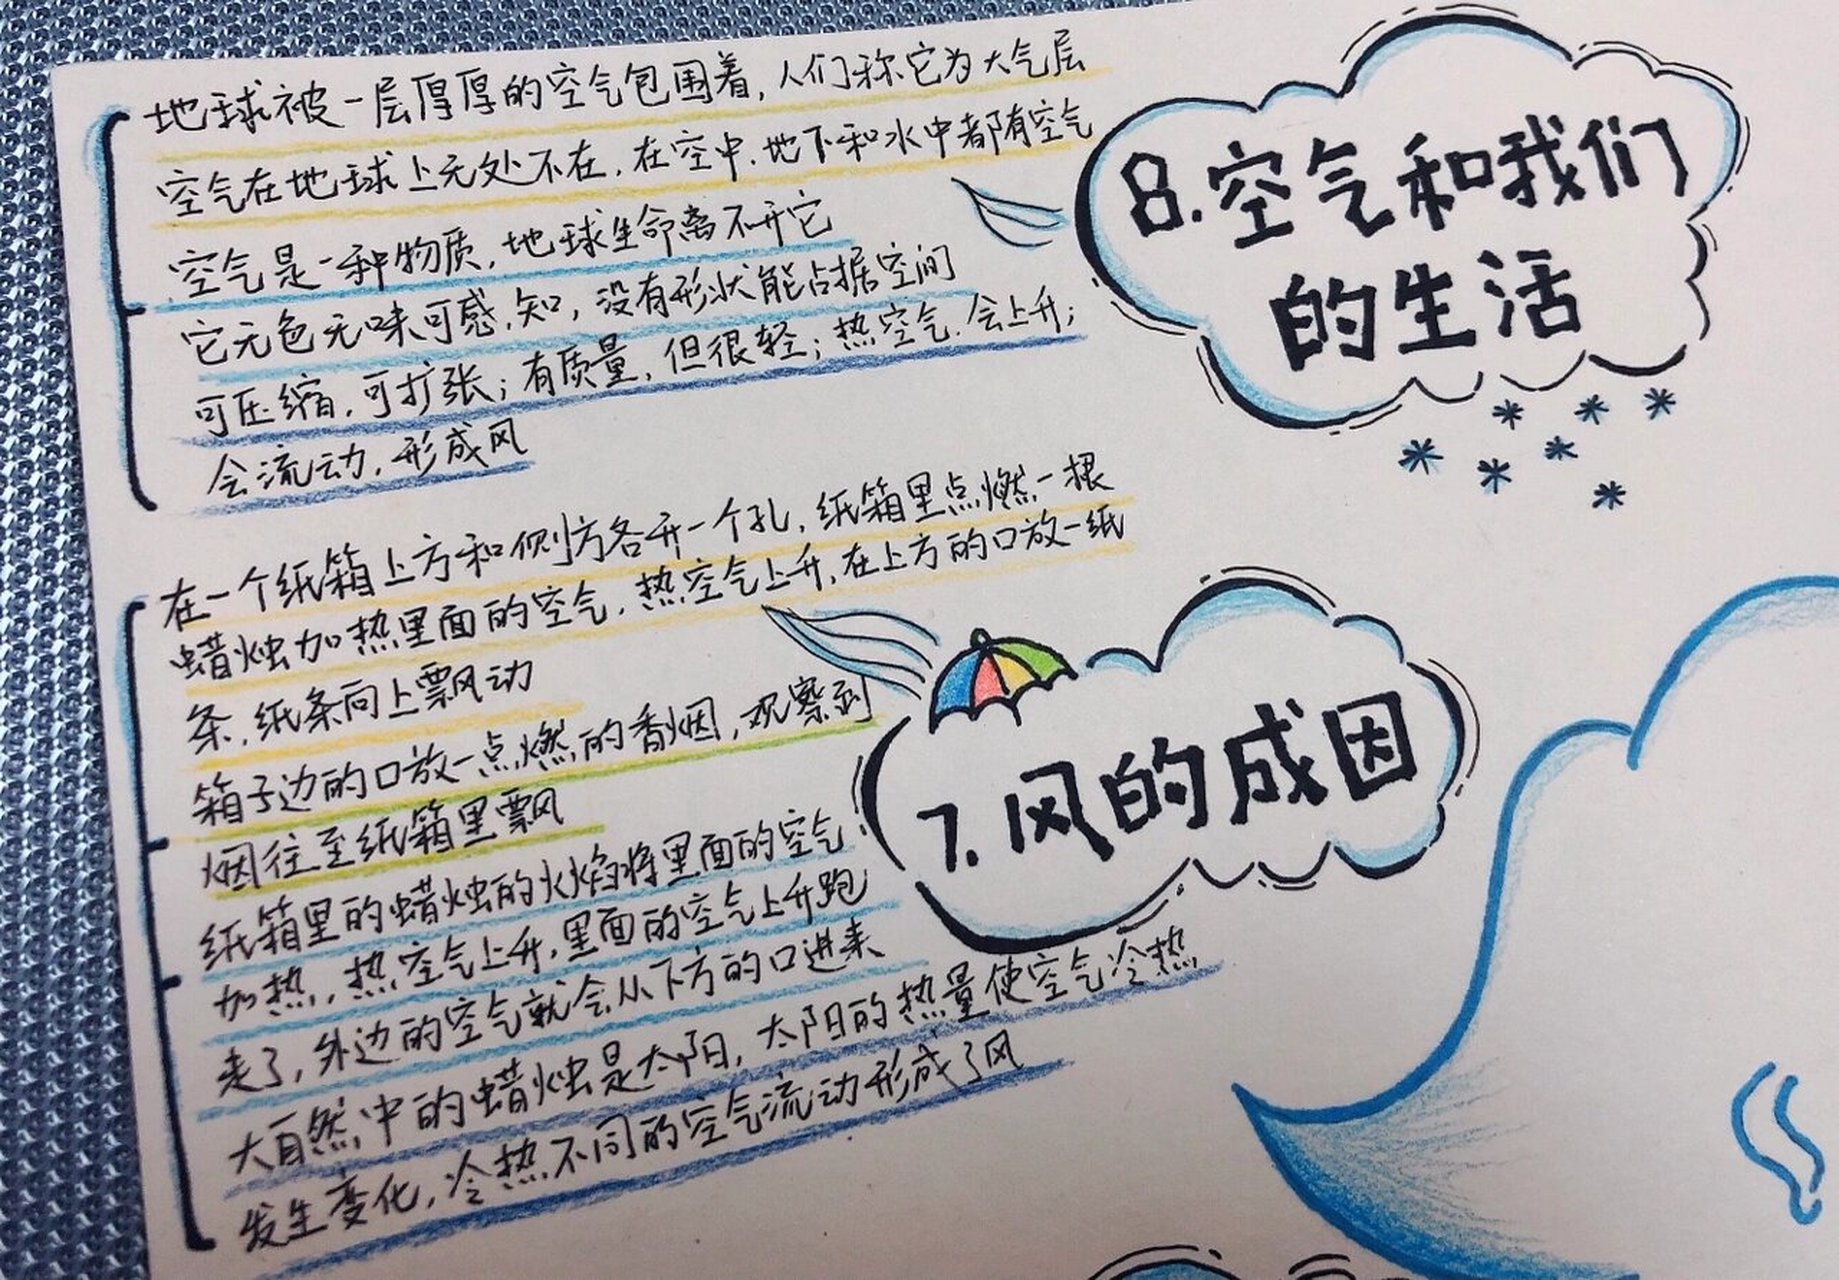 地球被一层厚厚的空气包围着，人们称它为大气层
空气在地球上无处不在，在空中、地下和水中都有空气
空气是一种物质，地球生命离不开它
它无色无味可感知，没有形状能占据空间
可压缩，可扩张；有质量，但很轻；热空气会上升；
会流动，形成风
8.空气和我们
的生活
在一个纸箱上方和侧方各开一个孔，纸箱里点燃一根
蜡烛加热里面的空气，热空气上升，在上方的口放一纸
条，纸条向上飘动
箱子边的口放一点燃的香烟，观察到
烟往至纸箱里飘
纸箱里的蜡烛的火焰将里面的空气
加热，热空气上升，里面的空气上升跑
走了，外边的空气就会从下方的口进来
大自然中的蜡烛是太阳，太阳的热量使空气冷热
发生变化，冷热不同的空气流动形成了风
7.风的成因